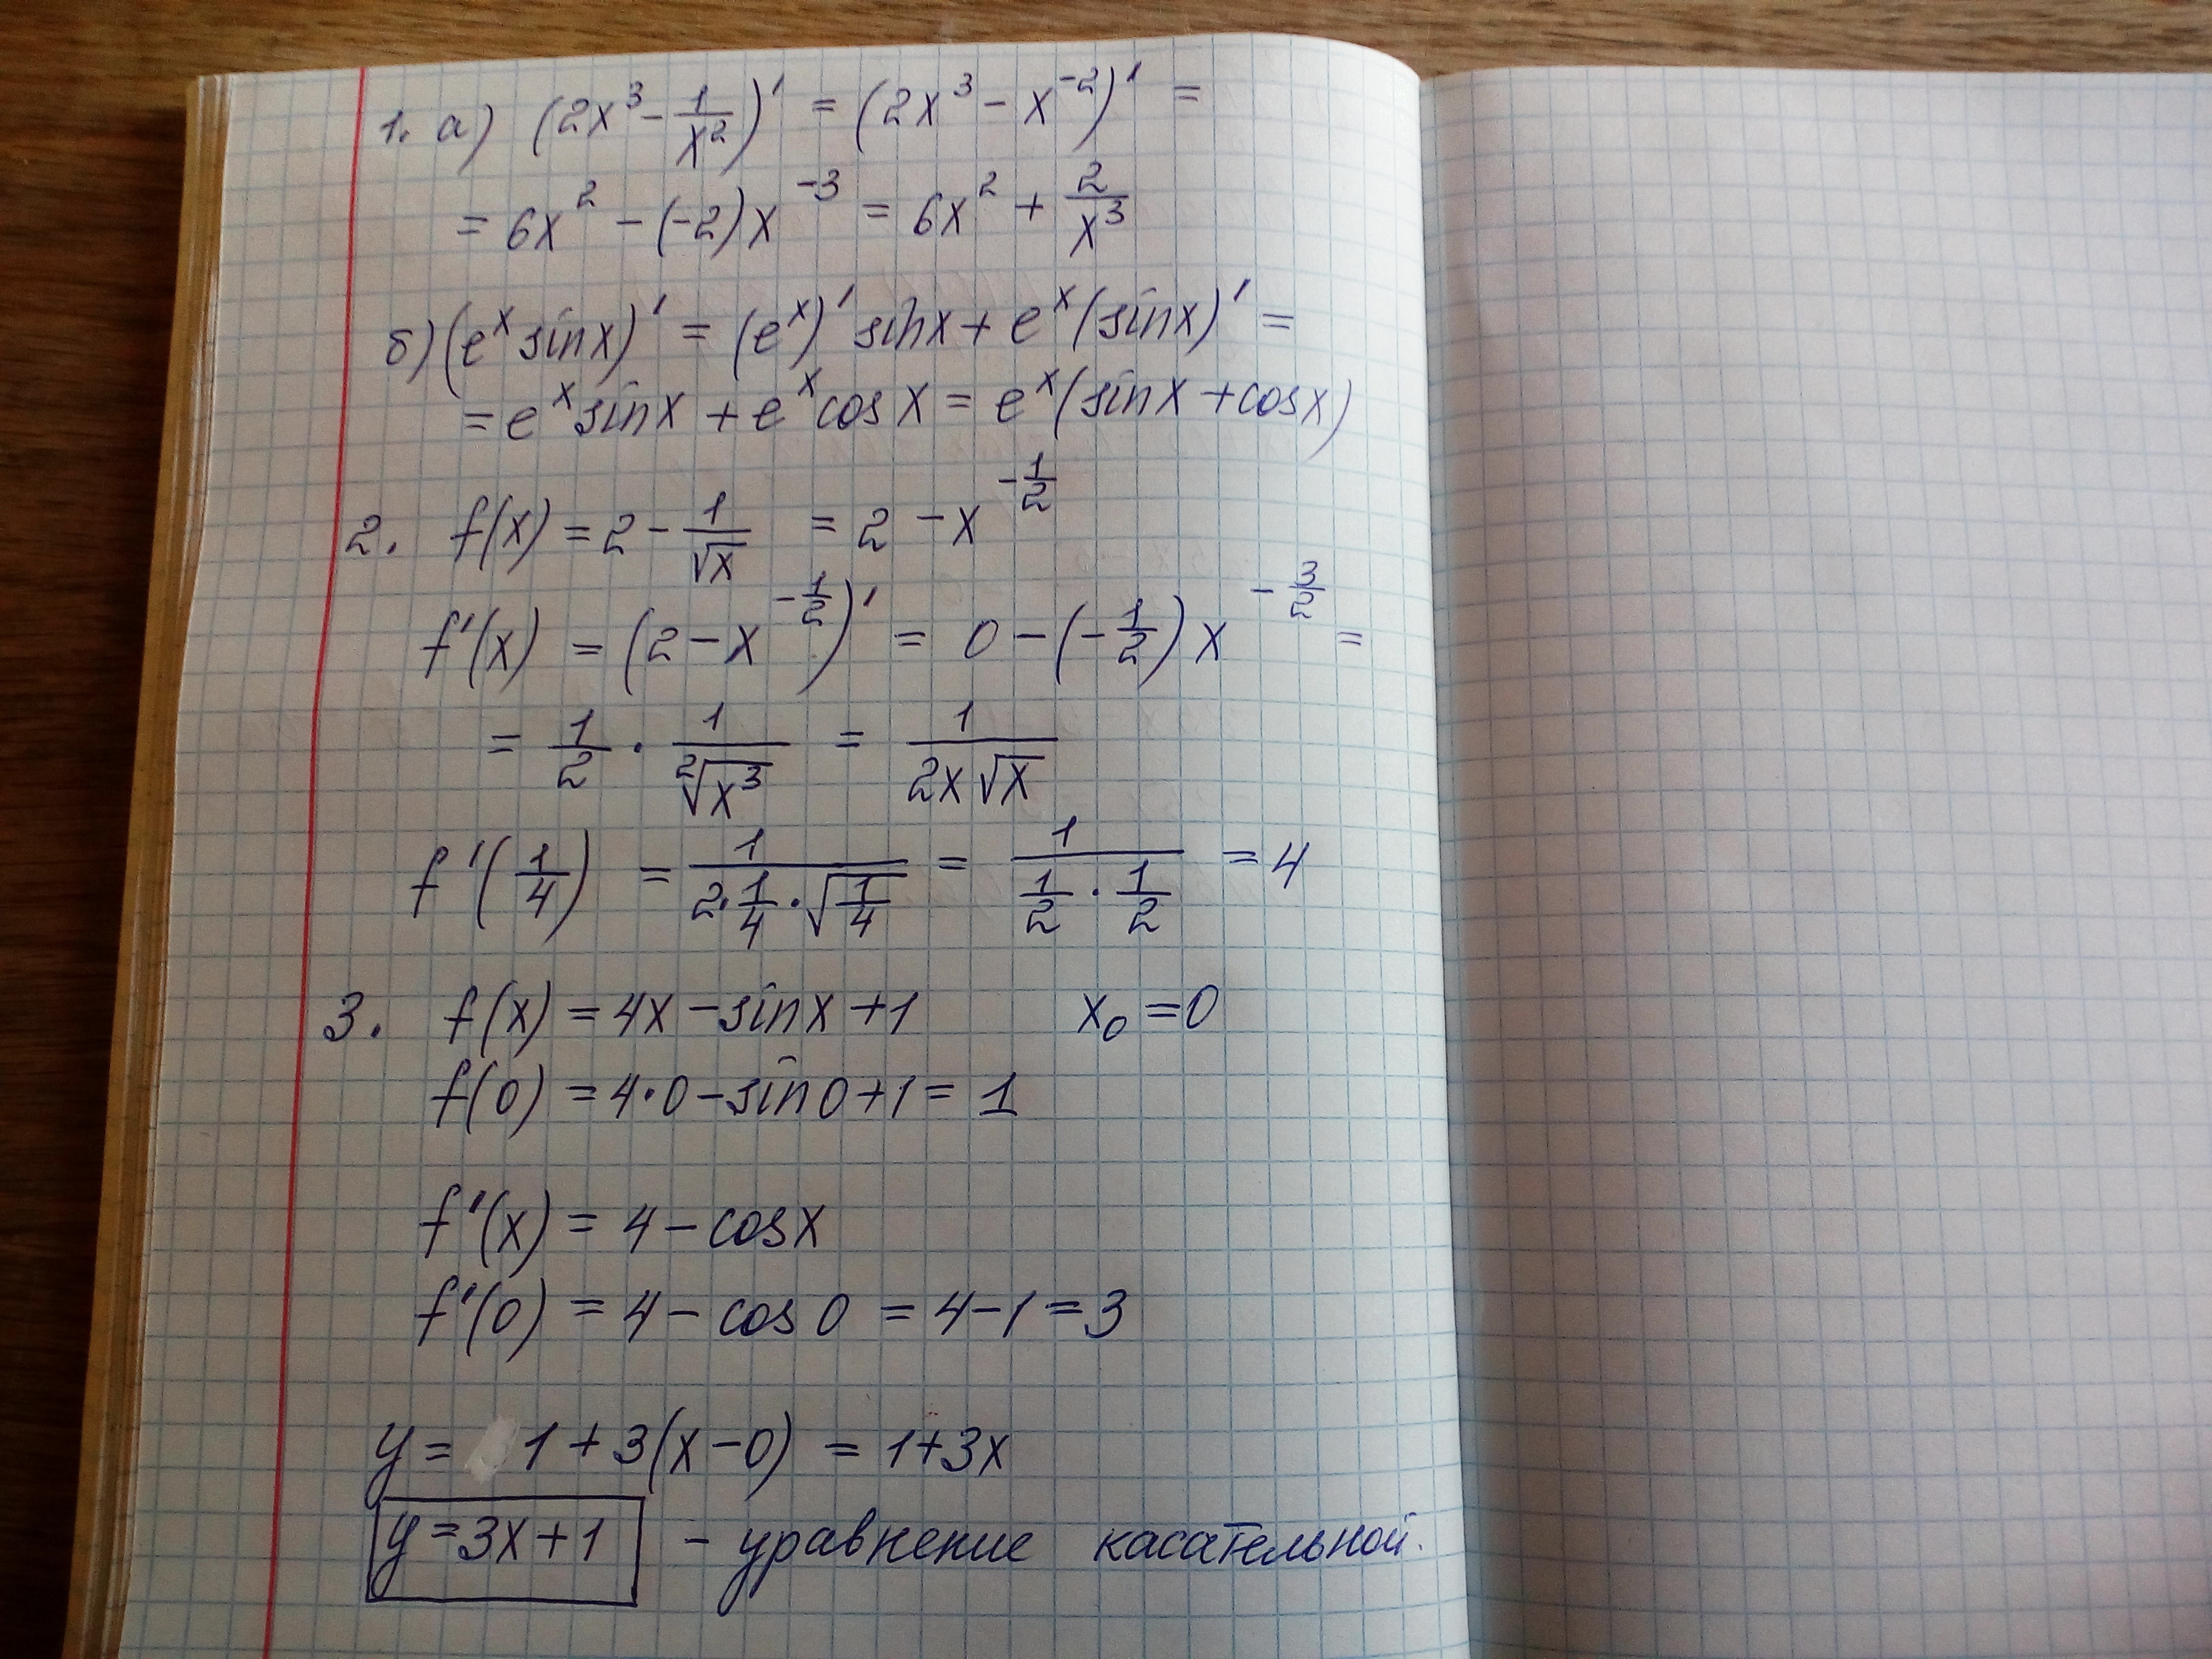 1. а) (2x³ - 1/x²)' = (2x³ - x⁻²)' =
= 6x² - (-2)x⁻³ = 6x² + 2/x³
б) (eˣ sinx)' = (eˣ)' sinx + eˣ (sinx)' =
= eˣ sinx + eˣ cosx = eˣ (sinx + cosx)
2. f(x) = 2 - 1/√x = 2 - x^(-1/2)
f'(x) = (2 - x^(-1/2))' = 0 - (-1/2) x^(-3/2) =
= 1/2 · 1/²√(x³) = 1/(2x√x)
f'(1/4) = 1/(2·1/4·√(1/4)) = 1/(1/2 · 1/2) = 4
3. f(x) = 4x - sinx + 1 x₀ = 0
f(0) = 4·0 - sin0 + 1 = 1
f'(x) = 4 - cosx
f'(0) = 4 - cos0 = 4 - 1 = 3
y = 1 + 3(x - 0) = 1 + 3x
y = 3x + 1 - уравнение касательной.